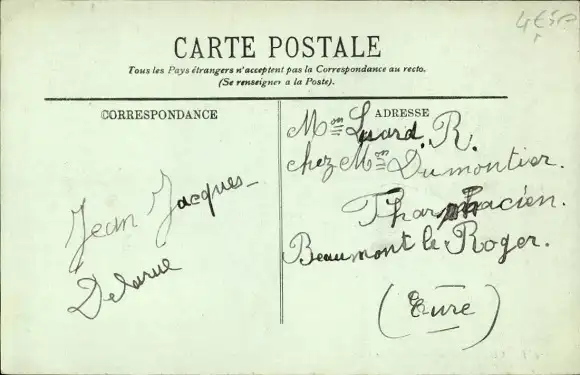 CARTE POSTALE
Tous les Pays étrangers n'acceptent pas la Correspondance au recto.
(Se renseigner à la Poste).
CORRESPONDANCE
Jean Jacques
Delarue
ADRESSE
R.
chez Mme Dumontier.
Pharmacien.
Beaumont le Roger.
(Eure)